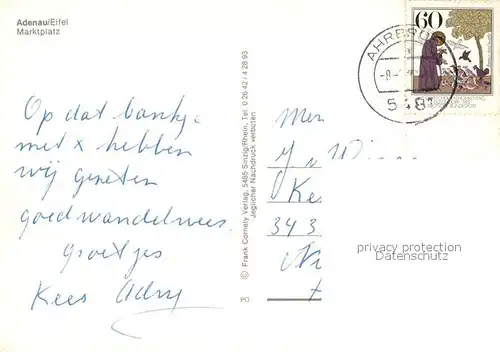 Adenau/Eifel
Marktplatz
Op dat bankje
met x hebben
wij genoten
goed wandelweer
Groetjes
Kees
© Frank Comely Verlag, 5485 Sinzig/Rhein, Tel. 0 26 42 / 4 28 93
Jeglicher Nachdruck verboten
PD
60
AHRBRÜ
5481
Ke
343
privacy protection
Datenschutz